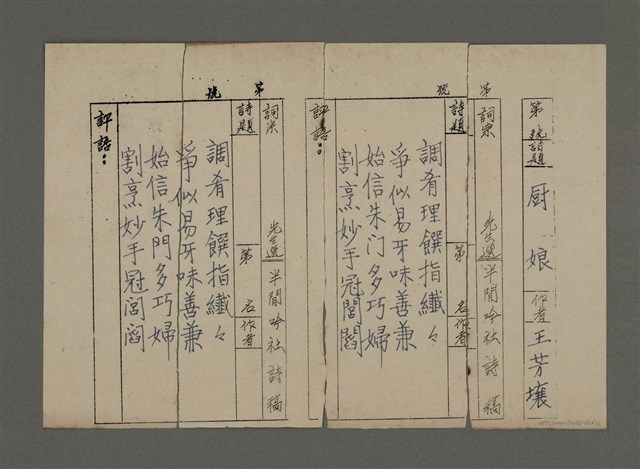 第 號詩題 厨娘 作者 王芳壤
第 號
詞宗 先生選 半閒吟社詩稿
詩題 第 名 作者
調肴理饌指纖々
爭似易牙味善兼
始信朱门多巧婦
割烹妙手冠閭閻
評語：
第 號
詞宗 先生選 半閒吟社詩稿
詩題 第 名 作者
調肴理饌指纖々
爭似易牙味善兼
始信朱門多巧婦
割烹妙手冠閭閻
評語：